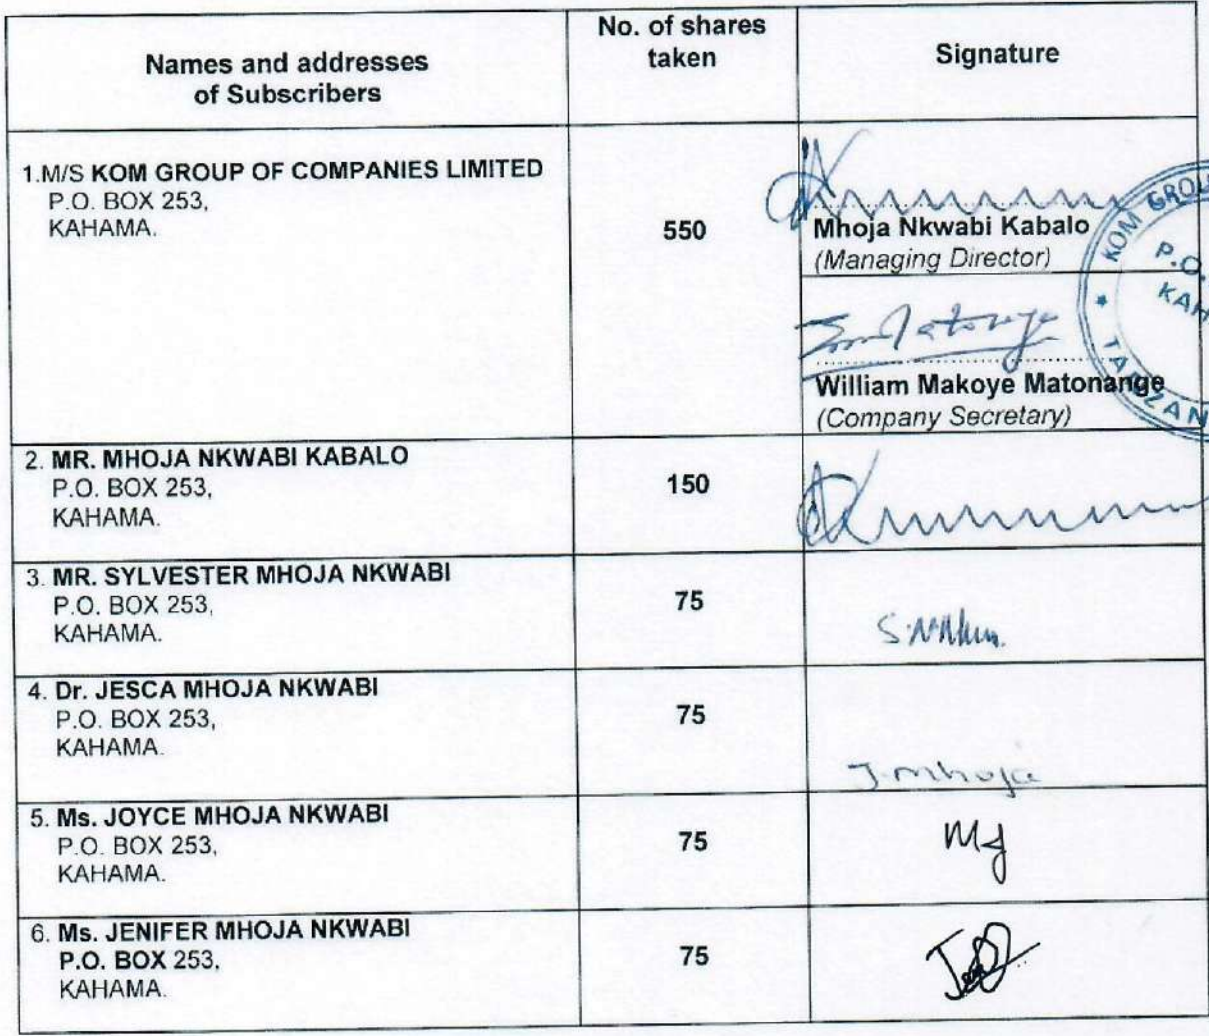 Names and addresses
of Subscribers
No. of shares
taken
Signature
1.M/S KOM GROUP OF COMPANIES LIMITED
P.O. BOX 253,
KAHAMA.
550
Mhoja Nkwabi Kabalo
(Managing Director)
William Makoye Matonange
(Company Secretary)
KOM GROU
P.O.
KAH
TANZAN
2. MR. MHOJA NKWABI KABALO
P.O. BOX 253,
KAHAMA.
150
3. MR. SYLVESTER MHOJA NKWABI
P.O. BOX 253,
KAHAMA.
75
4. Dr. JESCA MHOJA NKWABI
P.O. BOX 253,
KAHAMA.
75
J.mhoja
5. Ms. JOYCE MHOJA NKWABI
P.O. BOX 253,
KAHAMA.
75
6. Ms. JENIFER MHOJA NKWABI
P.O. BOX 253,
KAHAMA.
75